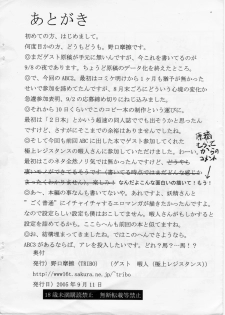 あとがき
初めての方、はじめまして。
何度目かの方、どうもどうも。野口摩擦です。
◎まだゲスト原稿が手元に無いんですが、今これを書いてるのが
9/8の夜であります。ちょっと原稿のデータ化を終えたところ。
◎で、今回のABC3。最初はコミケ明けから1ヶ月も猶予が無かった
せいで参加を諦めてたんですが、8月末ごろにどういう心境の変化か
急遽参加表明。9/2の応募締め切りぎりに放り込みました。
◎それから10日くらいでこのコピー本の制作という運びに。
最初は「2日本」とかいう超速の同人誌でも出そうかと思ったん
ですけど、さすがにそこまでの余裕はありませんでしたね。
◎そして今回も前回ABCに出した本でゲスト参加してくれた
極上レジスタンスの暇人さんに参加していただけました。わーい。
最初はこのネタ全然ノリ気では無かったんですけど、
なんだよこんな面白いの描いて！もう！
◎あー、本編の事なんも書いてないや。あれですよ、妖精さんと
”ごく普通”にイチャイチャするエロマンガが描きたかったんですよ。
なので設定らしい設定も僕はおこしてません。暇人さんがもしかすると
設定を詰めてるかも。ここら〜んも前回の本と似てますね。
◎お、結構埋まってきましたね。ではこのへんでさようなら。
ABC3があるならば、アレを投入したいです。どれ？馬？ー馬！？
奥付
発行) 野口摩擦(TRIBO)　(ゲスト　暇人(極上レジスタンス))
http://www16t.sakura.ne.jp/~tribo
発行日) 2005年9月11日
18歳未満購読禁止　無断転載等禁止